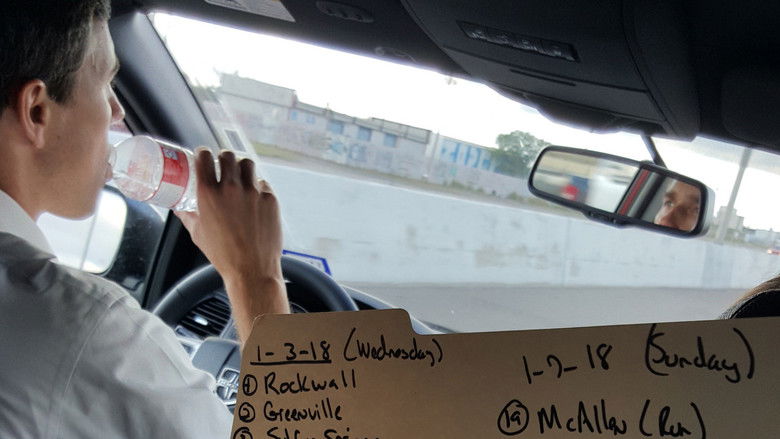 1-3-18 (Wednesday)
① Rockwall
② Greenville
③
1-7-18 (Sunday)
⑲ McAllen (Run)